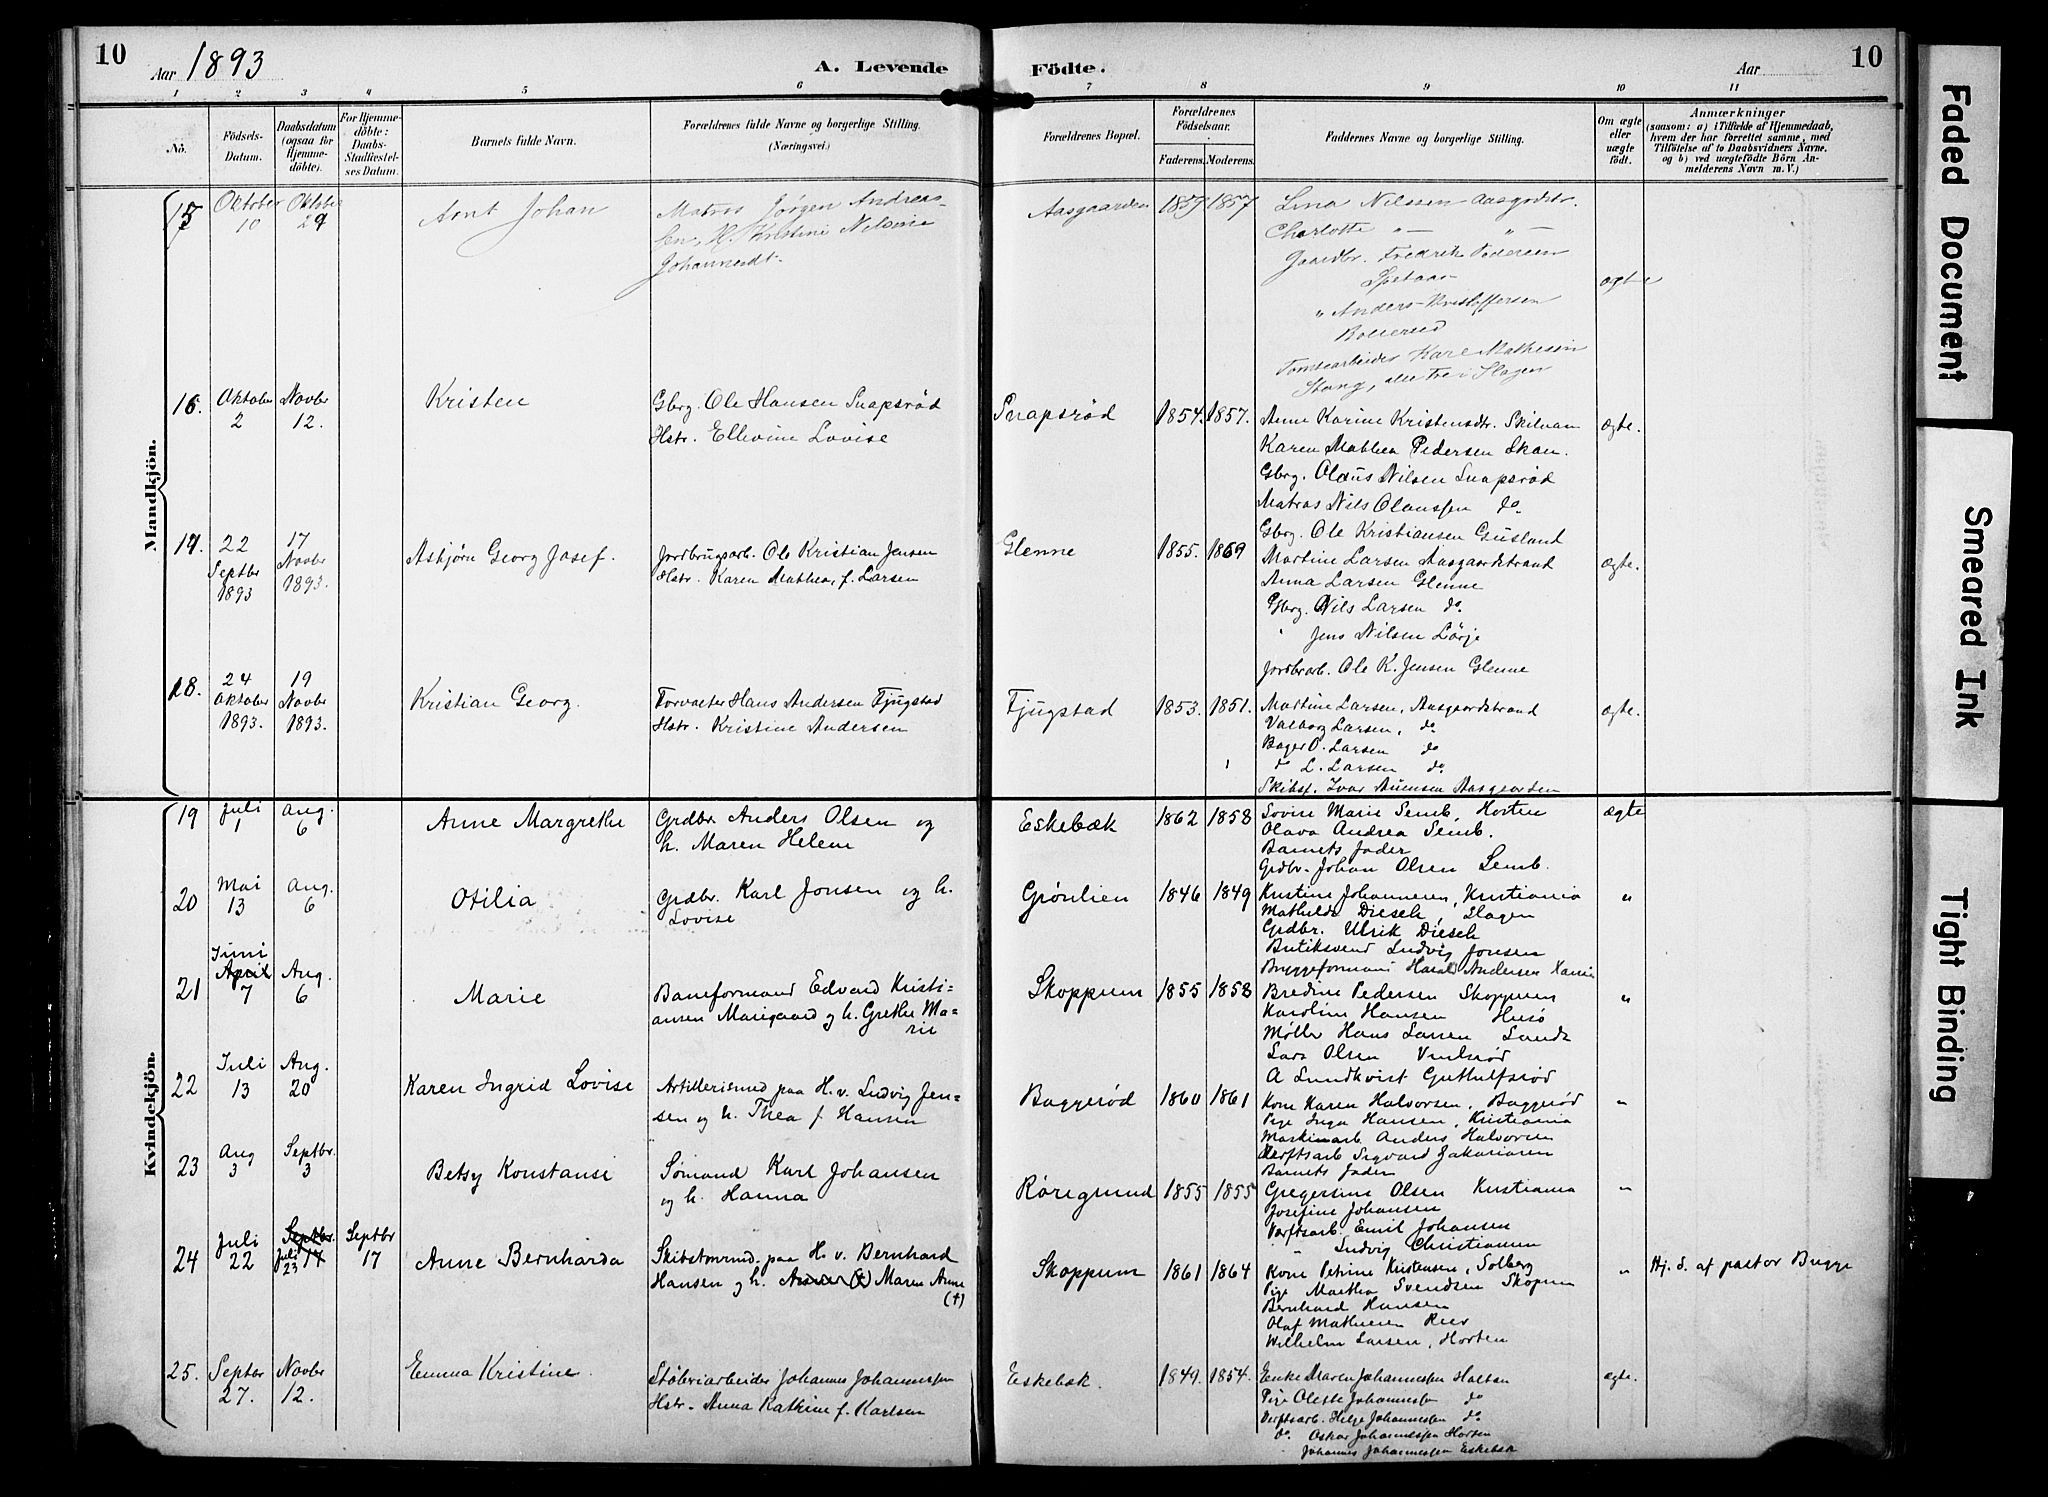 10
Aar 1893
A. Levende
Födte.
Aar
10
1 2 3 4 5 6 7 8 9 10 11
No.
Födsels-Datum.
Daabsdatum (ogsaa for Hjemmedöbte).
For Hjemmedöbte: Daabs-Stadfæstelses Datum.
Barnets fulde Navn.
Forældrenes fulde Navne og borgerlige Stilling. (Næringsvei.)
Forældrenes Bopæl.
Forældrenes Födselsaar.
Faderens. Moderens.
Faddernes Navne og borgerlige Stilling.
Om ægte eller uægte födt.
Anmærkninger
(saasom: a) i Tilfælde af Hjemmedaab,
hvem der har forrettet samme, med
Tilföielse af to Daabsvidners Navne,
og b) ved uægtefödte Börn Anmelderens Navn m. V.)
Mandkjön.
15 Oktober 10 Oktober 29 Arnt Johan
Matros Jørgen Andreas-
sen, H. Kristine Nilsine
Johannesdt.
Aasgaarden 1857 1857
Lina Nilssen Aasgdstr.
Charlotte " — " —
Gaardbr. Fredrik Pedersen
ægte
" Anders Kristoffersen
Bollerud
Tomtearbeider Karl Mathesen
Stang, alle tre i Slagen
16. Oktober 2 Novbr 12. Kristen
Gbrg. Ole Hansen Snapsrød
Hstr. Ellevine Lovise
Snapsrød 1854. 1857.
Anne Karine Kristensdtr. Skilvam ægte.
Karen Mathea Pedersen Skan.
Gbrg. Olaus Nilsen Snapsrød
Matros Nils Olaussen do.
Gbrg. Ole Kristiansen Gusland
17. 22 Septbr 1893 17 Novbr 1893. Asbjørn Georg Josef.
Jordbrugsarb. Ole Kristian Jensen
Hstr. Karen Mathea, f. Larsen
Glenne 1855. 1869
Martine Larsen Aasgaardstrand ægte.
Anna Larsen Glenne
Gbrg. Nils Larsen do.
" Jens Nilsen Lörje
Jordbrarb. Ole K. Jensen Glenne
18. 24 Oktober 1893. 19 Novbr 1893. Kristian Georg.
Forvalter Hans Andersen Fjugstad
Hstr. Kristine Andersen
Fjugstad 1853. 1851.
Martine Larsen, Aasgaardstrand ægte.
Valborg Larsen, do
Bager O. Larsen do
do L. Larsen do.
Skibsf. Ivar Aasgaarden
Kvindekjön.
19 Juli 1 Aug. 6 Anne Margrethe
Grdbr Anders Olsen og
h. Maren Helene
Eskebæk 1862 1858
Lovise Marie Semb, Horten ægte
Olava Andrea Semb.
Barnets fader
Grdbr. Johan Olsen Semb.
20 Mai 13 Aug. 6 Otilia
Grdbr. Karl Jonsen og h.
Lovise
Grönlien 1846 1849
Kristine Johannesen, Kristiania "
Mathilde Diesch, Slagen
Grdbr. Ulrik Diesch
Butiksvend Ludvig Jonsen
Byggeformand Harald Andersen Xania
21 Juni April 7 Aug. 6 Marie
Baneformand Edvard Kristi-
ansen Marigaard og h. Grethe Ma-
rie
Skoppum 1855 1858
Bredine Pedersen Skoppum "
Karoline Hansen Husö
Møller Hans Larsen Sande
Lars Olsen
A Lundkvist
22 Juli 13 Aug. 20 Karen Ingrid Lovise
Artillerismd paa H. v. Ludvig Jen-
sen og h. Thea f Hansen
Baggerød 1860 1861
Kone Karen Halvorsen, Baggerød "
Pige Inga Hansen, Kristiania
Maskinarb. Anders Halvorsen
Verftsarb Sigvard Zakariasen
Barnets fader
23 Aug 3 Septbr. 3 Betsy Konstanse
Sømand Karl Johansen
og h. Hanna
Röregrund 1855 1855
Gregersine Olsen Kristiania "
Josefine Johansen
Verftsarb. Emil Johansen
" Ludvig Christiansen
24 Juli 22 Septbr. 17 Juli 23 Septbr 17 Anne Bernharda
Skibstmrmd. paa H. v. Bernhard
Hansen og h. Anna (†) Maren Anne
(†)
Skoppum 1861 1864
Kone Petrine Kristensen, Solberg " Hj. d. af pastor Bugge
Pige Martha Svendsen Skopum
Bernhard Hansen
Olaf Mathiesen
Wilhelm Larsen, Horten
25. Septbr 27. Novbr 12. Emma Kristine.
Støberiarbeider Johannes Johannessen
Hstr. Anna Katrine f. Karlsen
Eskebæk. 1849. 1854.
Enke Maren Johannessen Holtan ægte.
Pige Oleste Johannessen do
Verftsarb. Helge Johannessen do
do. Oskar Johannessen Horten
Johannes Johannessen Eskebæk
Faded Document
Smeared Ink
Tight Binding